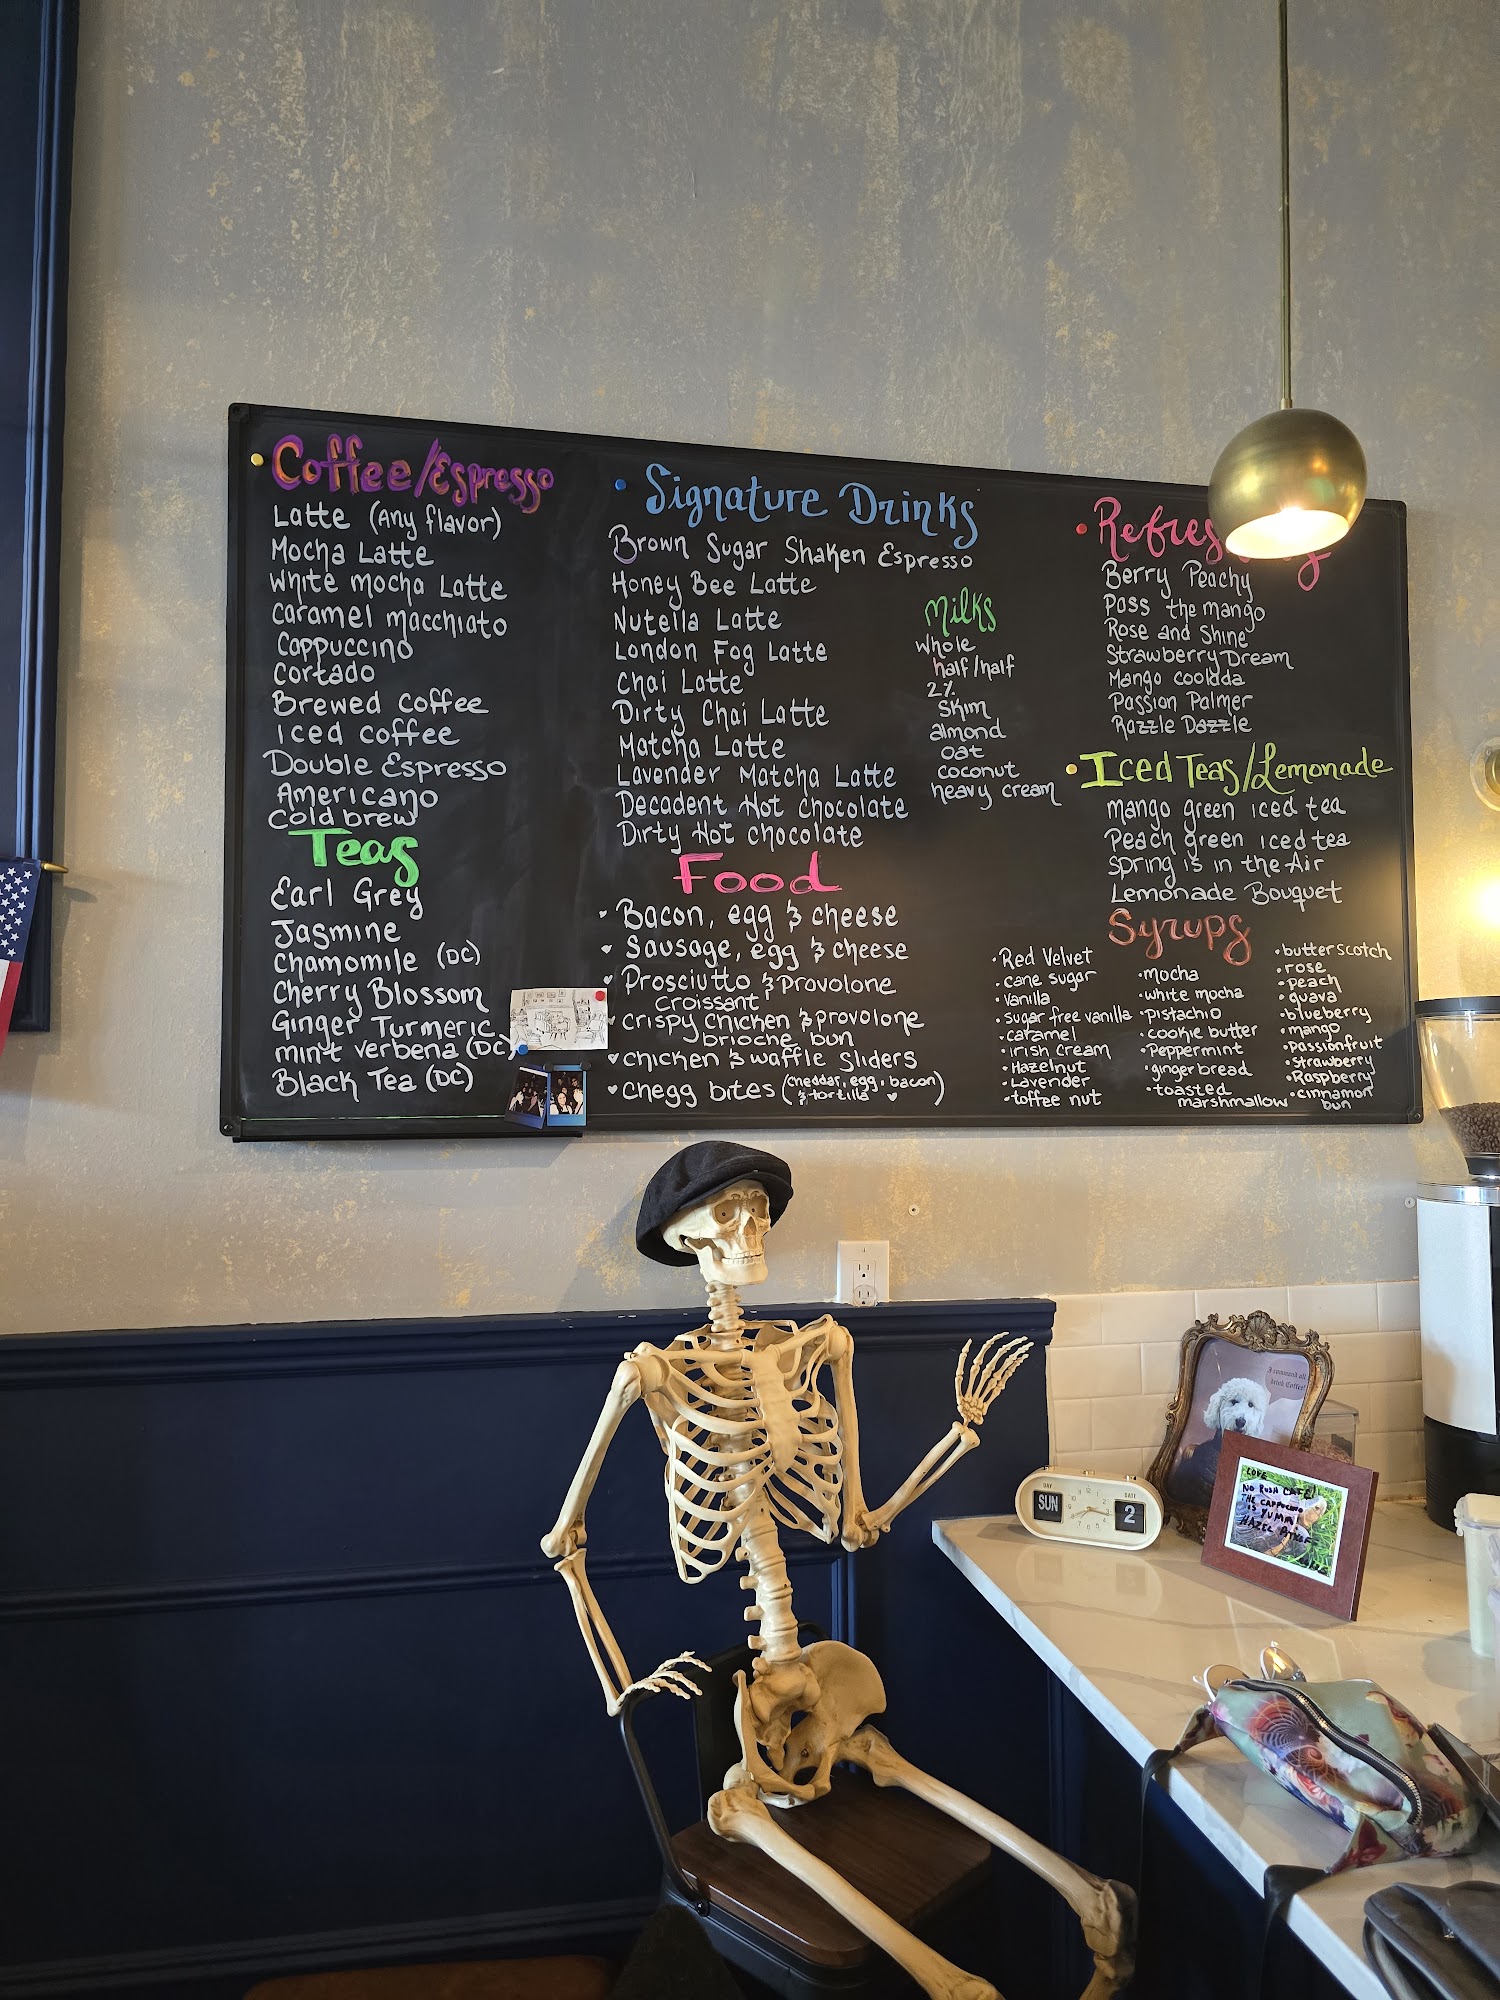 Coffee/Espresso
Latte (Any flavor)
Mocha Latte
White mocha Latte
caramel macchiato
Cappuccino
Cortado
Brewed coffee
Iced coffee
Double Espresso
Americano
Cold brew
Teas
Earl Grey
Jasmine
Chamomile (DC)
Cherry Blossom
Ginger Turmeric
mint verbena (DC)
Black Tea (DC)
Signature Drinks
Brown Sugar Shaken Espresso
Honey Bee Latte
Nutella Latte
London Fog Latte
Chai Latte
Dirty Chai Latte
Matcha Latte
Lavender Matcha Latte
Decadent Hot chocolate
Dirty Hot chocolate
Milks
whole
half/half
2%
skim
almond
oat
coconut
heavy cream
Food
Bacon, egg & cheese
Sausage, egg & cheese
Prosciutto & provolone
croissant
crispy chicken & provolone
brioche bun
chicken & waffle sliders
chegg bites (cheddar, egg, bacon
& tortilla)
Berry Peachy
Pass the mango
Rose and Shine
Strawberry Dream
Mango coolada
Passion Palmer
Razzle Dazzle
Iced Teas/Lemonade
mango green iced tea
Peach green iced tea
Spring is in the Air
Lemonade Bouquet
Syrups
• Red Velvet
• cane sugar
• Vanilla
• sugar free vanilla
• caramel
• irish cream
• Hazelnut
• Lavender
• toffee nut
• mocha
• white mocha
• pistachio
• cookie butter
• Peppermint
• gingerbread
• toasted
marshmallow
• butterscotch
• rose
• peach
• guava
• blueberry
• mango
• Passionfruit
• strawberry
• Raspberry
• cinnamon
bun
I command all
drink Coffee!
DAY
SUN
DATE
2
LOVE
NO RUSH CAFE!
THE CAPPUCCINO
IS YUMMI
HAZEL